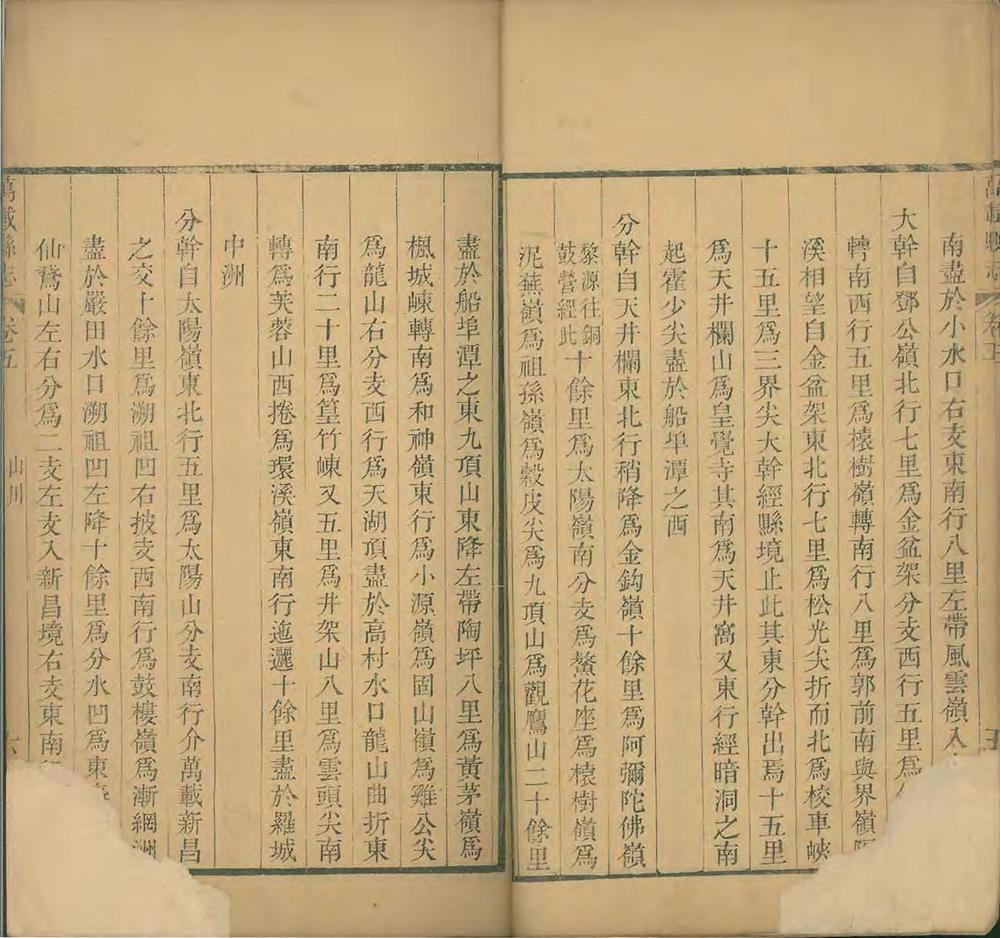 南盡於小水口右支東南行八里左帶風雲嶺入
大幹自鄧公嶺北行七里爲金盆架分支西行五里爲
轉南西行五里爲榬樹嶺轉南行八里爲郭前南與界嶺
溪相望自金盆架東北行七里爲松光尖折而北爲校車峽
十五里爲三界尖大幹經縣境止此其東分幹出焉十五里
爲天井欄山爲皇覺寺其南爲天井窩又東行經暗洞之南
起霍少尖盡於船埠潭之西
分幹自天井欄東北行稍降爲金鈎嶺十餘里爲阿彌陀佛嶺
黎源往銅鼓營經此十餘里爲太陽嶺南分支爲鰲花座爲榬樹嶺爲
泥蕪嶺爲祖孫嶺爲穀皮尖爲九頂山爲觀鷹山二十餘里
盡於船埠潭之東九頂山東降左帶陶坪八里爲黃茅嶺爲
楓城崠轉南爲和神嶺東行爲小源嶺爲固山嶺爲雞公尖
爲龍山右分支西行爲天湖頂盡於高村水口龍山曲折東
南行二十里爲篁竹崠又五里爲井架山八里爲雲頭尖南
轉爲芙蓉山西捲爲環溪嶺東南行迤邐十餘里盡於羅城
中洲
分幹自太陽嶺東北行五里爲太陽山分支南行介萬載新昌
之交十餘里爲溯祖凹右披支西南行爲鼓樓嶺爲漸網洲
盡於嚴田水口溯祖凹左降十餘里爲分水凹爲東
仙鵞山左右分爲二支左支入新昌境右支東南
萬載縣志
卷五
山川
六